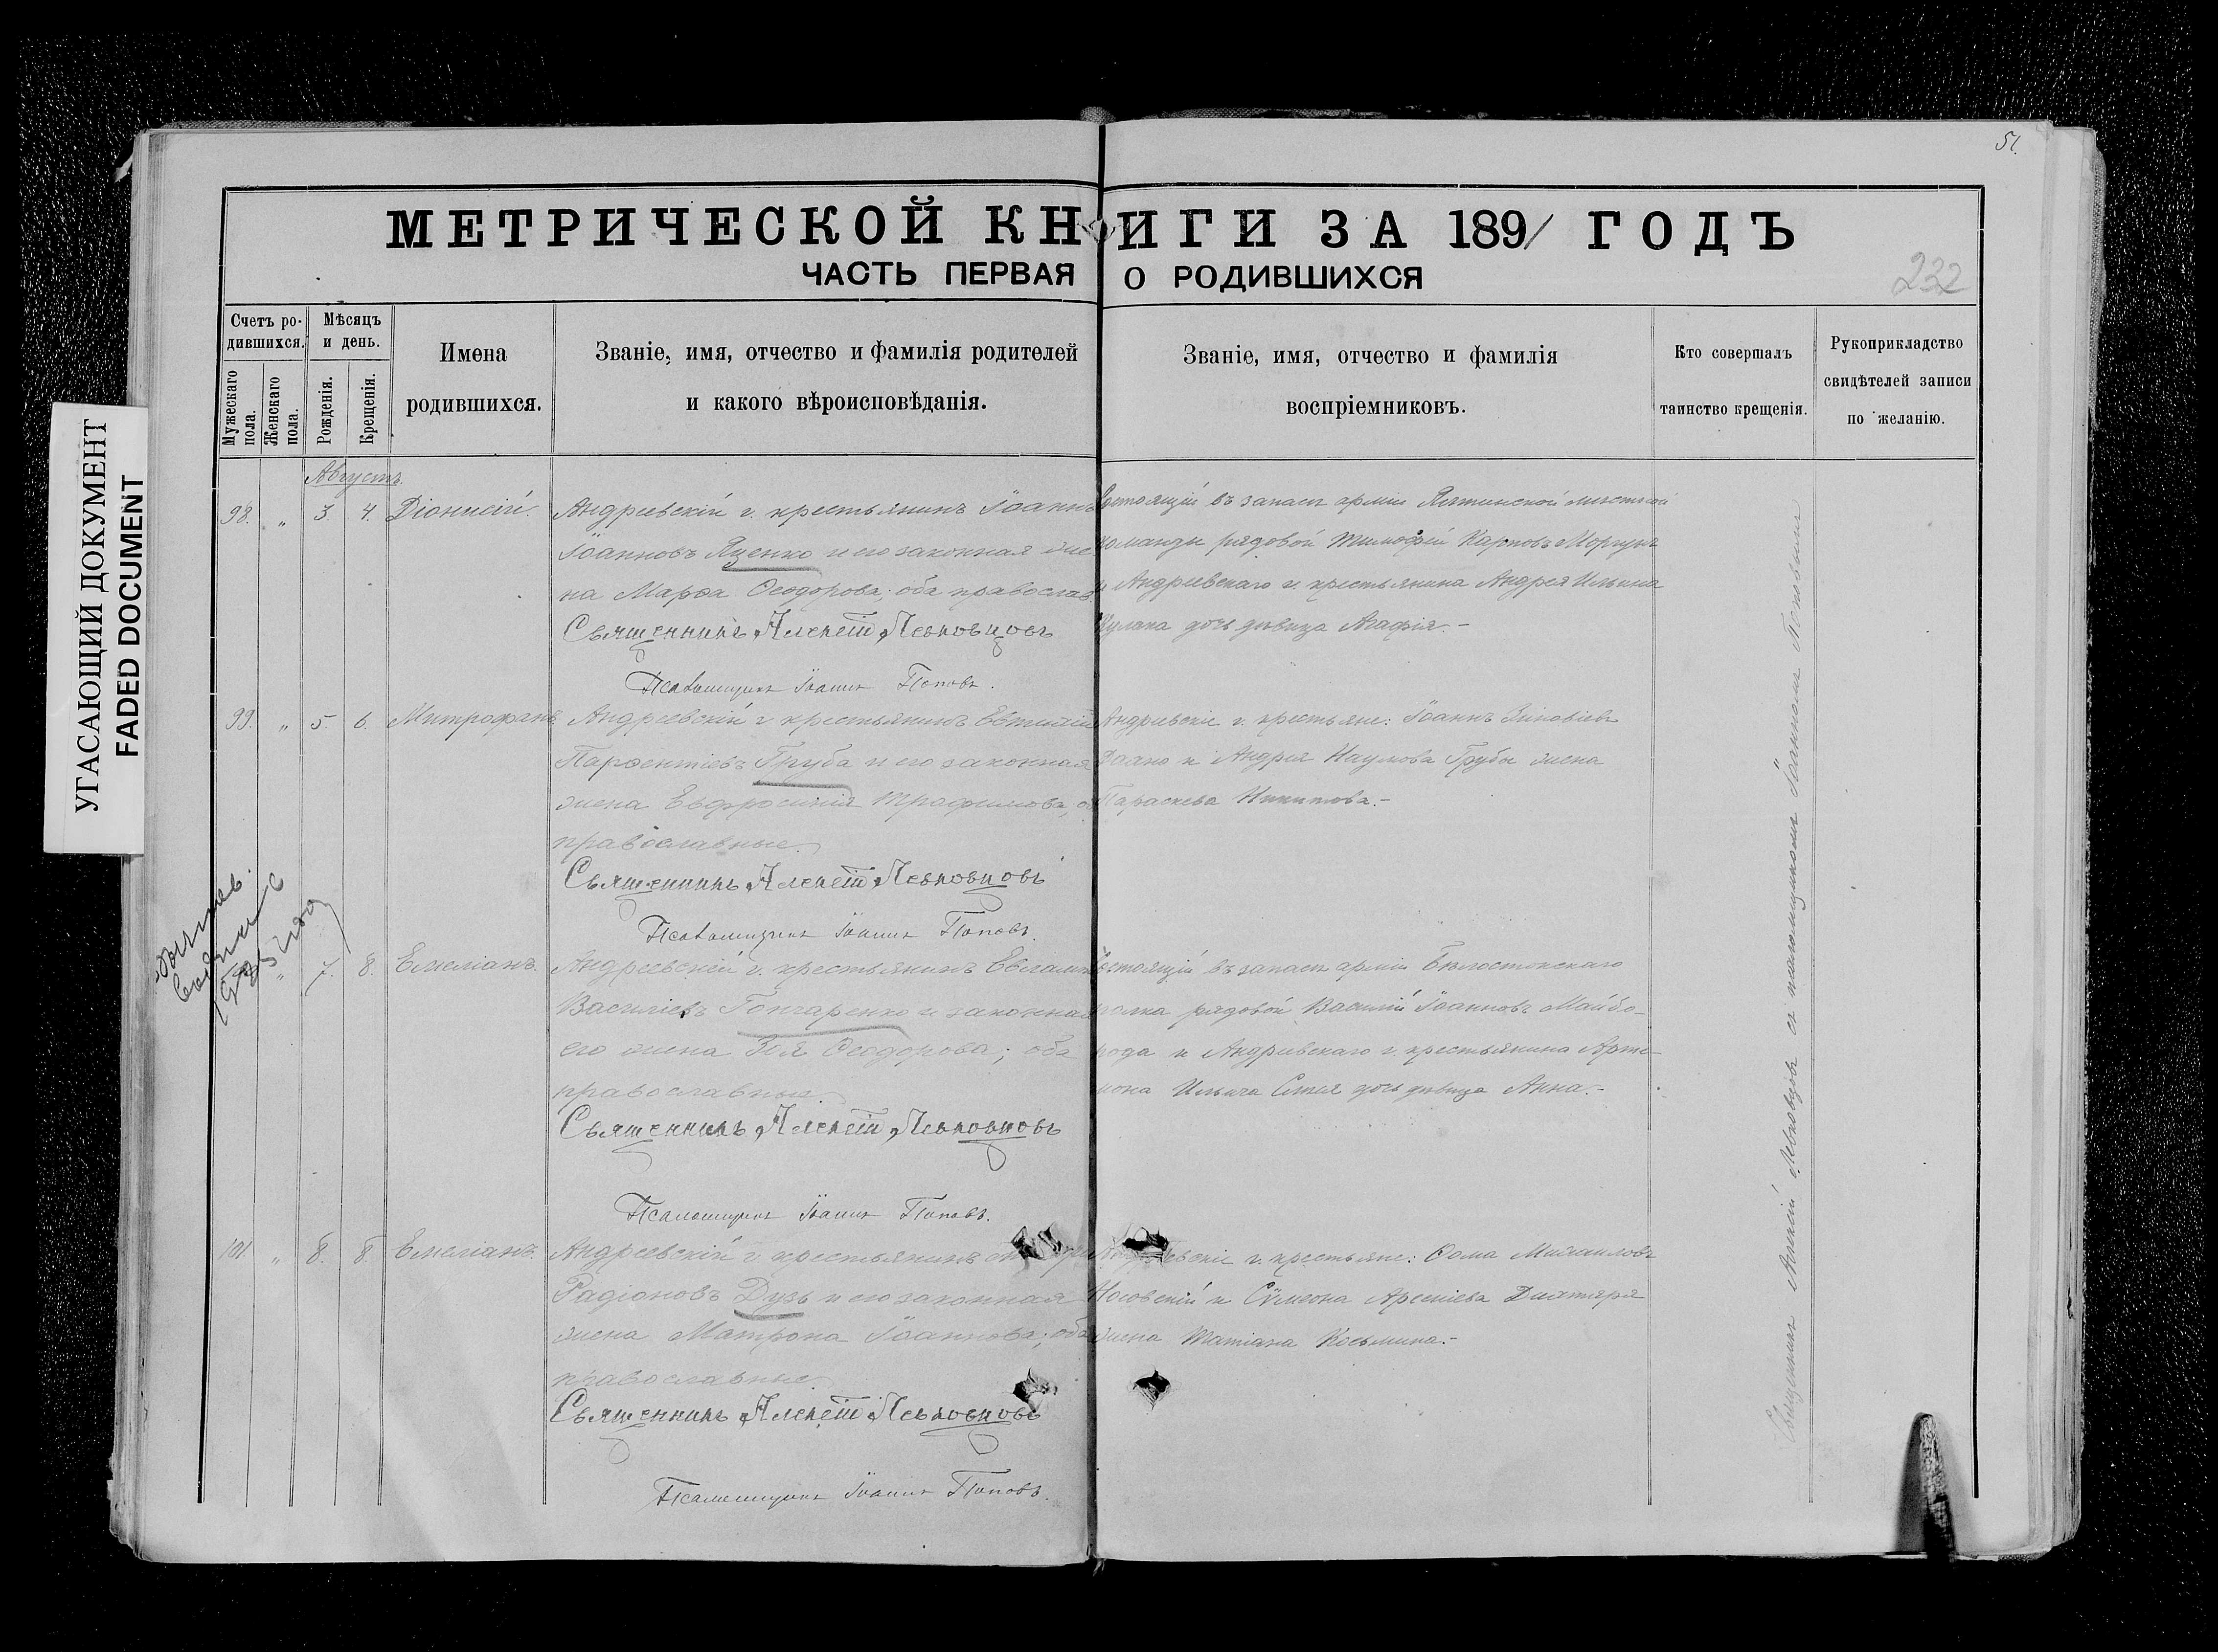 51.
МЕТРИЧЕСКОЙ КНИГИ ЗА 1891 ГОДЪ
ЧАСТЬ ПЕРВАЯ О РОДИВШИХСЯ
232
Счетъ ро-
дившихся.
Мужескаго
пола.
Женскаго
пола.
Мѣсяцъ
и день.
Рожденія.
Крещенія.
Имена
родившихся.
Званіе, имя, отчество и фамилія родителей
и какого вѣроисповѣданія.
Званіе, имя, отчество и фамилія
воспріемниковъ.
Кто совершалъ
таинство крещенія.
Рукоприкладство
свидѣтелей записи
по желанію.
УГАСАЮЩИЙ ДОКУМЕНТ
FADED DOCUMENT
Августъ
98. " 3 4. Діонисій.
Андреевскій г. крестьянинъ Іоаннъ
Іоанновъ Яценко и его законная же
на Марѳа Ѳеодорова; оба православ.
Священникъ Алексій Левковцовъ
Псаломщикъ Іоаннъ Поповъ.
Состоящій въ запасѣ арміи мѣстной
команды рядовой Тимоѳей Карповъ Моргунъ
и Андреевскаго г. крестьянина Андрея Ильина
Кулака дочь дѣвица Агафія.-
99. " 5. 6. Митрофанъ
Андреевскій г. крестьянинъ Евтихій
Парѳентіевъ Груба и его законная
жена Евфросинія Трофимова,
православные.
Священникъ Алексій Левковцовъ
Псаломщикъ Іоаннъ Поповъ.
Андреевскіе г. крестьяне: Іоаннъ Зиновіевъ
и Андрея Наумова Грубы жена
Параскева Никитова.-
" 7. 8. Емеліанъ.
Андреевскій г. крестьянинъ
Василіевъ Гончаренко и законная
его жена Зоя Ѳеодорова; оба
православные.
Священникъ Алексій Левковцовъ
Псаломщикъ Іоаннъ Поповъ.
Состоящій въ запасѣ арміи Бѣлостокскаго
полка рядовой Василій Іоанновъ Майбо-
рода и Андреевскаго г. крестьянина Арте-
мона Ильича дочь дѣвица Анна.-
101. " 8. 8. Емеліанъ.
Андреевскій г. крестьянинъ
Радіоновъ Дузь и его законная
жена Матрона Іоаннова; оба
православные.
Священникъ Алексій Левковцовъ
Псаломщикъ Іоаннъ Поповъ.
г. крестьяне: Ѳома Михаиловъ
Носовскій и Сѵмеона Арсеніева Дихтяря
жена Татіана Косьмина.-
Священникъ Алексій Левковцовъ съ псаломщикомъ Іоанномъ Поповымъ